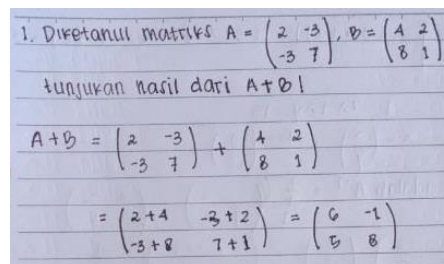 1. Diketahui matriks A = (2 -3 / -3 7), B = (4 2 / 8 1)
tunjukan hasil dari A+B!
A+B = (2 -3 / -3 7) + (4 2 / 8 1)
= (2+4 -3+2 / -3+8 7+1) = (6 -1 / 5 8)